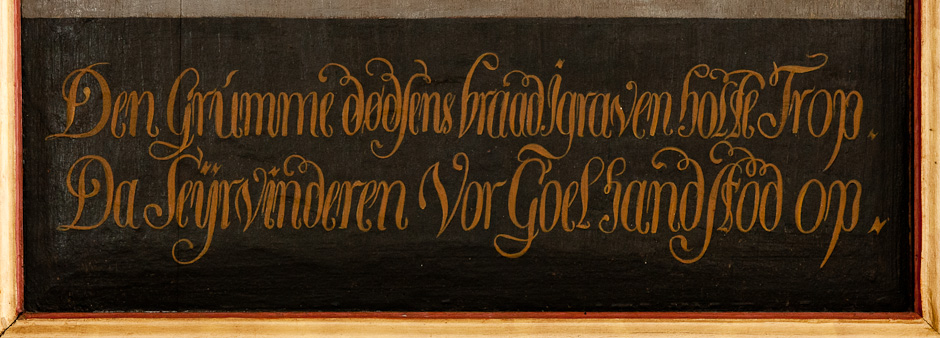 Den Grumme dødsens braad Igraven holte Trop.
Da Seÿrvinderen Vor Goel hand stod op.